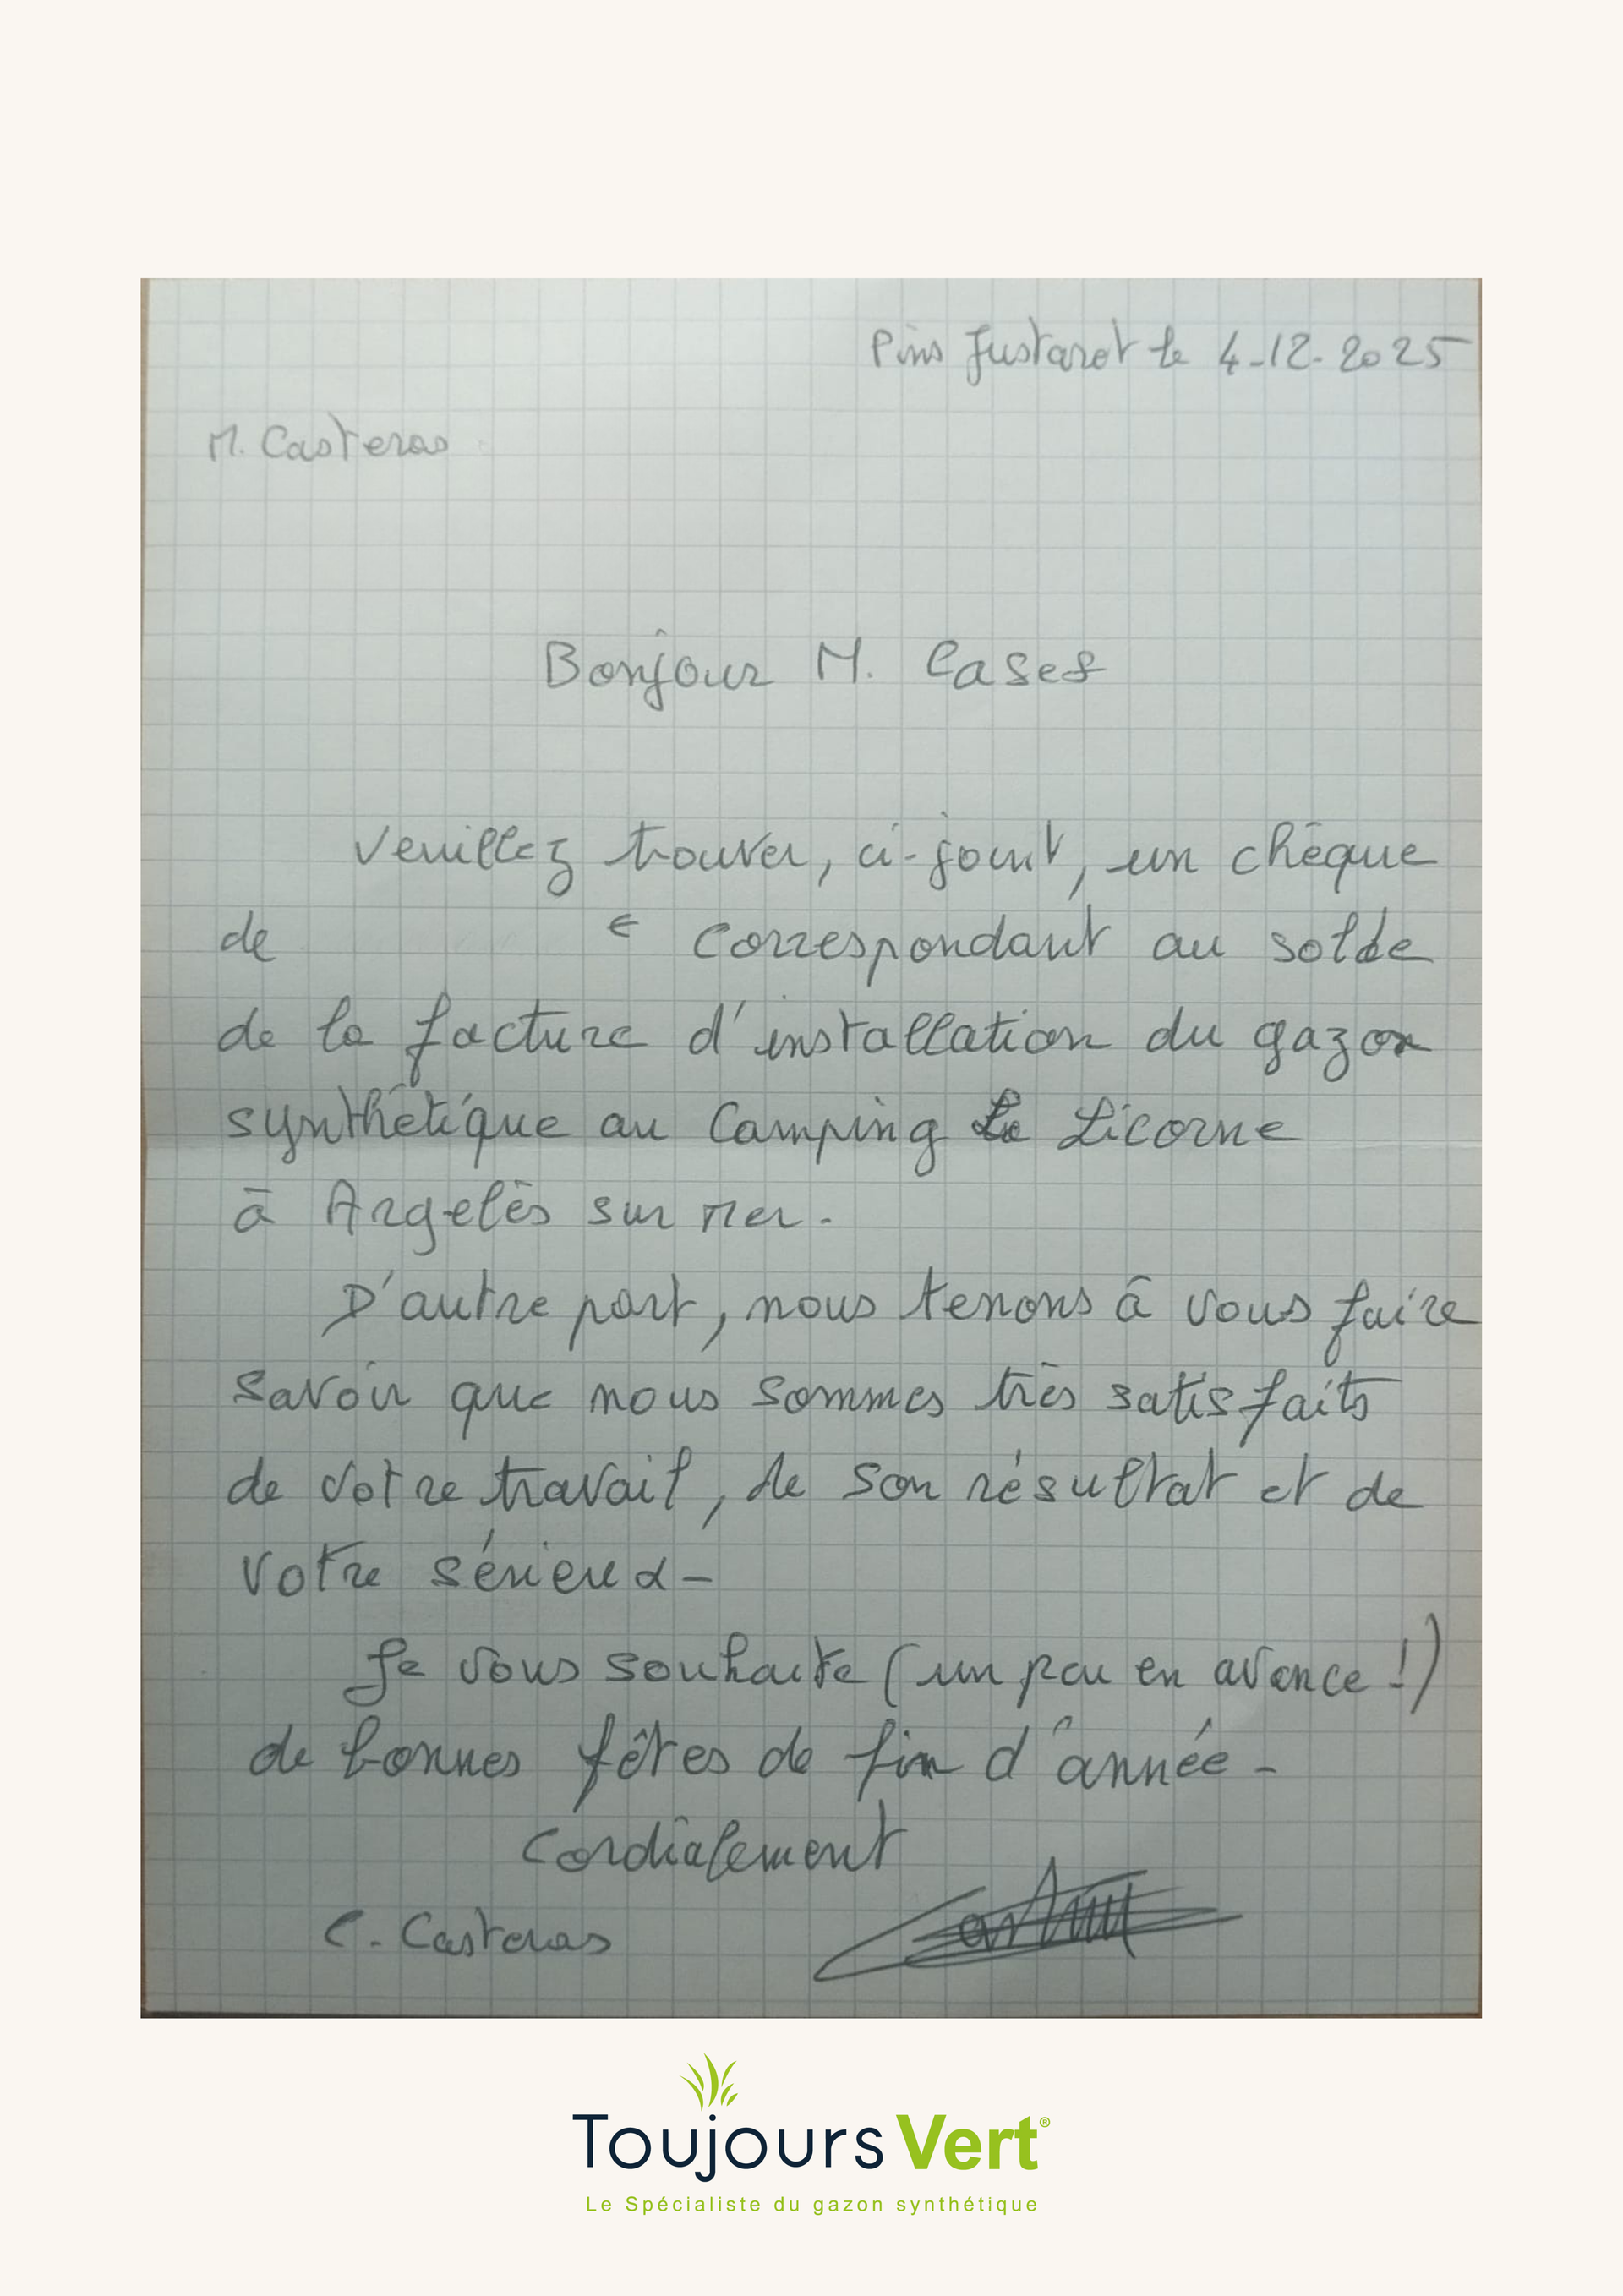 Pins Justaret le 4-12-2025
M. Casteras
Bonjour M. Cases
Veuillez trouver, ci-joint, un chèque
de € correspondant au solde
de la facture d'installation du gazon
synthétique au Camping La Licorne
à Argelès sur Mer.
D'autre part, nous tenons à vous faire
savoir que nous sommes très satisfaits
de votre travail, de son résultat et de
votre sérieux-
Je vous souhaite (un peu en avance!)
de bonnes fêtes de fin d'année-
Cordialement
C. Casteras
Toujours Vert®
Le Spécialiste du gazon synthétique